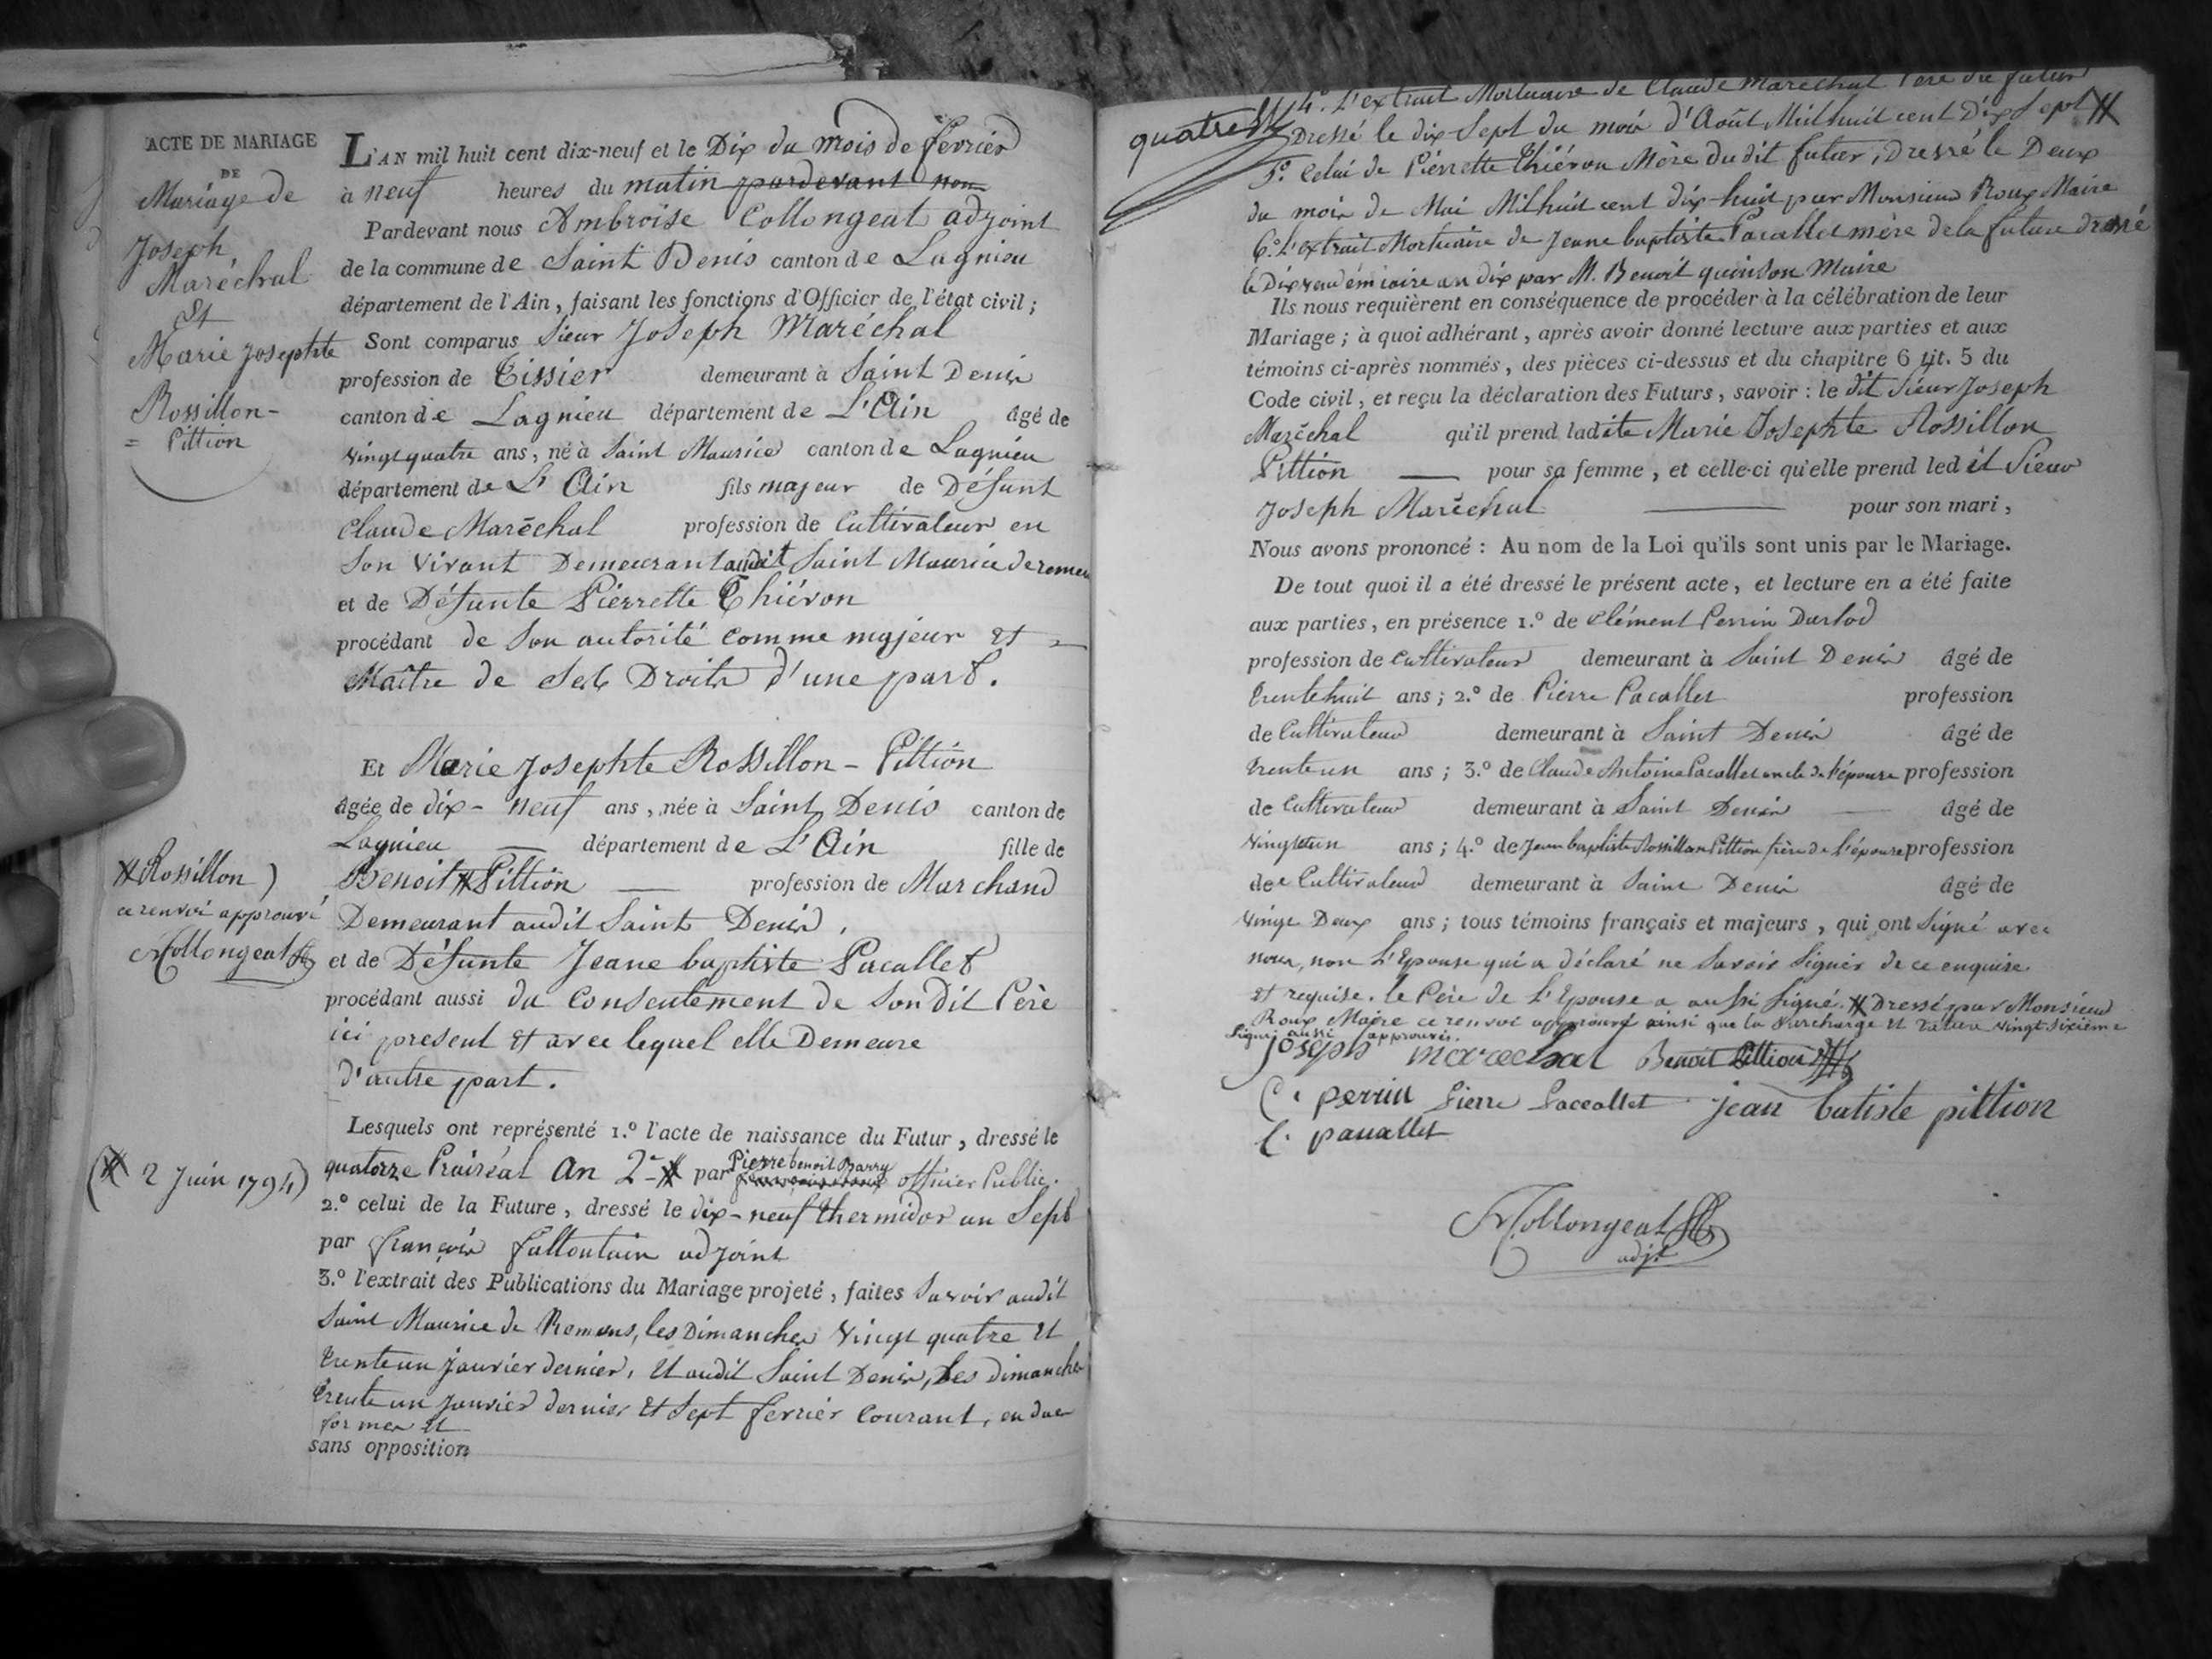 ACTE DE MARIAGE
DE
Mariage de
Joseph,
Maréchal
Et
Marie Josephte
Rossillon-
= Pittion
L'AN mil huit cent dix-neuf et le Dix du mois de fevrier
à neuf heures du matin pardevant nous
Pardevant nous Ambroise Collongeat adjoint
de la commune de Saint Denis canton de Lagnieu
département de l'Ain, faisant les fonctions d'Officier de l'état civil;
Sont comparus Sieur Joseph Maréchal
profession de Tissier demeurant à Saint Denis
canton de Lagnieu département de L'Ain âgé de
vingt quatre ans, né à Saint Maurice canton de Lagnieu
département de L'Ain fils majeur de Défunt
Claude Maréchal profession de Cultivateur en
Son vivant Demeurant audit Saint Maurice de remens
et de Défunte Pierrette Thiévon
procédant de Son autorité comme majeur et =
Maître de Ses Droits d'une part.
Et Marie Josephte Rossillon - Pittion
âgée de dix-neuf ans, née à Saint Denis canton de
Lagnieu — département de L'Ain fille de
Benoit # Pittion — profession de Marchand
# Rossillon)
ce renvoi approuvé
Collongeat
Demeurant audit Saint Denis,
et de Défunte Jeane baptiste Pacallet
procédant aussi du Consentement de Son dit Père
ici present et avec lequel elle Demeure
d'autre part.
Lesquels ont représenté 1.º l'acte de naissance du Futur, dressé le
quatorze Prairéal an 2e # par Pierre benoit Barry officier Public.
(# 2 Juin 1794)
2.º celui de la Future, dressé le dix-neuf thermidor an Sept
par françois falloutain adjoint
3.º l'extrait des Publications du Mariage projeté, faites Savoir audit
Saint Maurice de Remens, les Dimanches Vingt quatre et
trente un janvier dernier, et audit Saint Denis, les dimanches
trente un janvier dernier et sept fevrier courant, en due
formes et
sans opposition
quatre
4º. L'extrait Mortuaire de Claude Maréchal Père du futur
Dressé le dix Sept du mois d'Août Mil huit cent Dix Sept #
5º. Celui de Piérrette Thiévon Mère du dit futur, Dressé le Deux
du mois de Mai Mil huit cent dix-huit par Monsieur Roux Maire
6º. L'extrait Mortuaire de Jeane baptiste Pacallet mère de la future dressé
le Dix vendémiaire an dix par M. Benoit quinson Maire
Ils nous requièrent en conséquence de procéder à la célébration de leur
Mariage; à quoi adhérant, après avoir donné lecture aux parties et aux
témoins ci-après nommés, des pièces ci-dessus et du chapitre 6 tit. 5 du
Code civil, et reçu la déclaration des Futurs, savoir: le dit Sieur Joseph
Maréchal qu'il prend ladite Marie Josephte Rossillon
Pittion — pour sa femme, et celle-ci qu'elle prend ledit Sieur
Joseph Maréchal — pour son mari,
Nous avons prononcé: Au nom de la Loi qu'ils sont unis par le Mariage.
De tout quoi il a été dressé le présent acte, et lecture en a été faite
aux parties, en présence 1.º de Clément Perrin Durlod
profession de Cultivateur demeurant à Saint Denis âgé de
trente huit ans; 2.º de Pierre Pacallet profession
de Cultivateur demeurant à Saint Denis âgé de
trente un ans; 3.º de Claude Antoine Pacallet oncle de l'épouse profession
de Cultivateur demeurant à Saint Denis — âgé de
Vingt un ans; 4.º de Jean baptiste Rossillon Pittion frère de l'épouse profession
de Cultivateur demeurant à Saint Denis âgé de
Vingt Deux ans; tous témoins français et majeurs, qui ont Signé avec
nous, non L'Epouse qui a déclaré ne Savoir Signer de ce enquise
et requise. le Père de L'Epouse a aussi Signé. # Dressé par Monsieur
Roux Maire ce renvoi approuvé ainsi que la Surcharge et rature vingt sixième
Ligne aussi approuvés.
joseph marechal Benoit Pittion
C. perrin Pierre Paccallet jean batiste pittion
C. pacallet
Collongeat
adjt